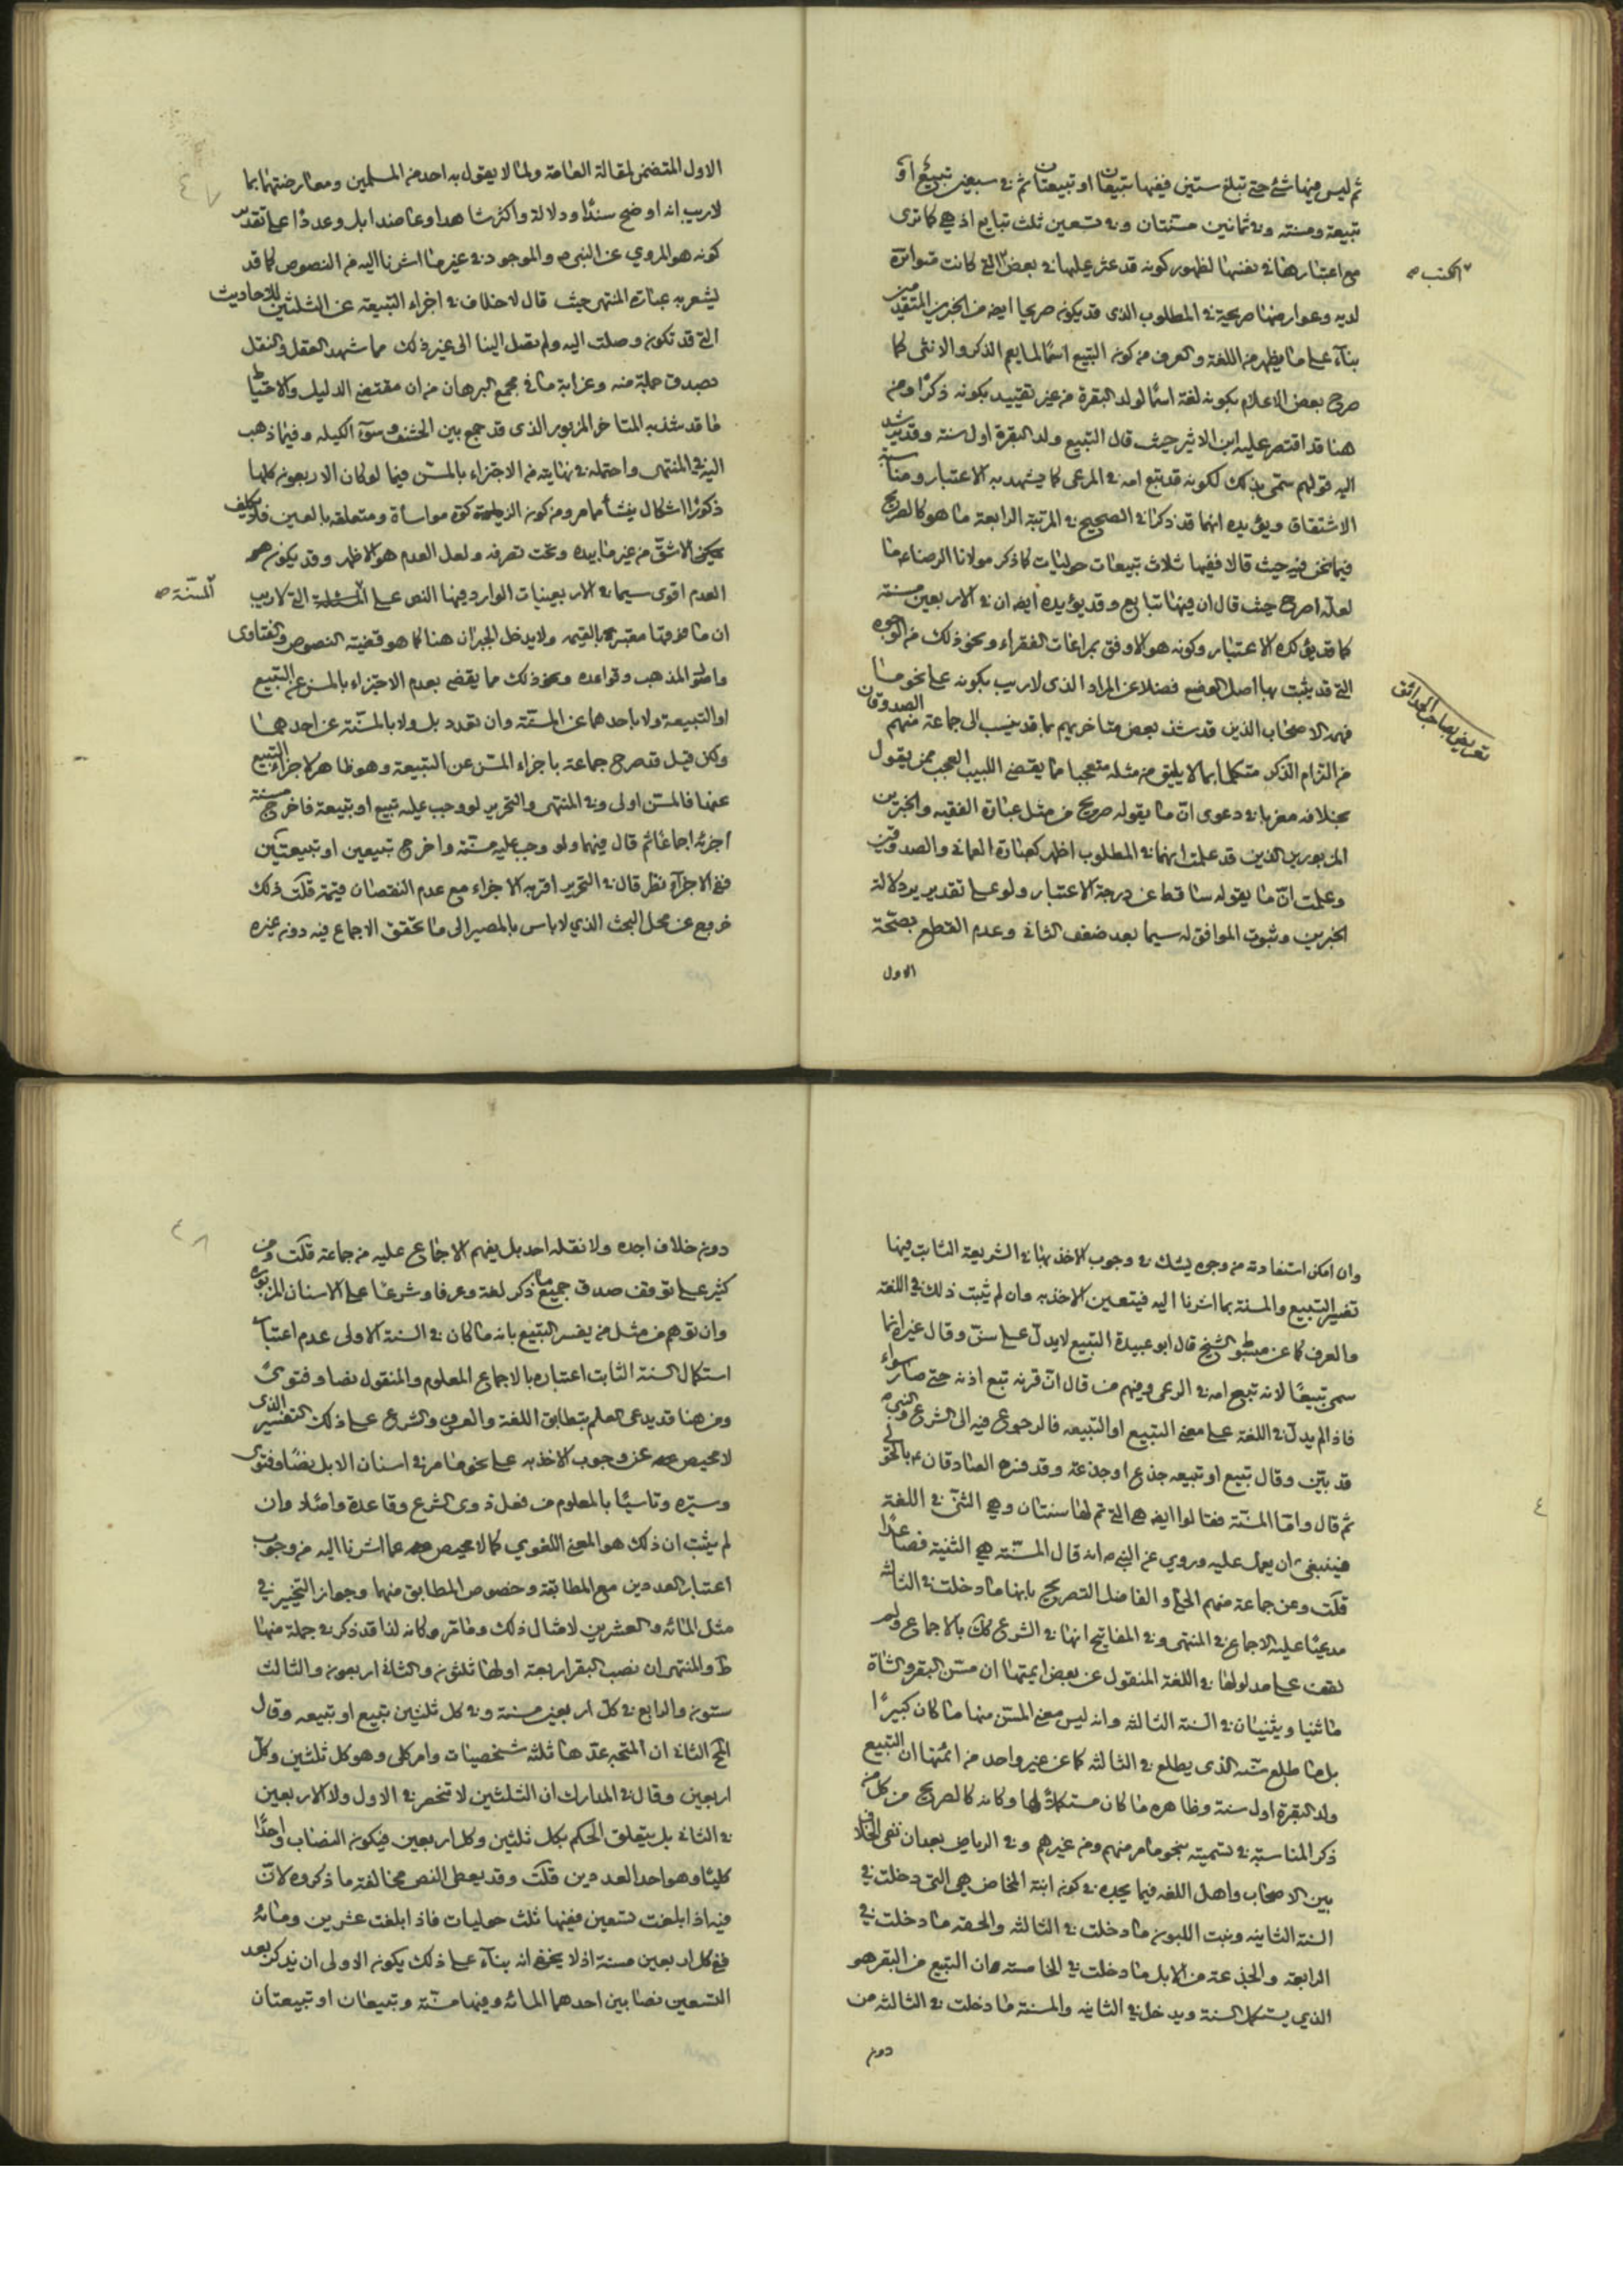 ثم ليس فيها شئ حتى تبلغ ستين ففيها تبيعان او تبيعتان ثم في سبعين تبيع او
تبيعة ومسنه وفي ثمانين مسنتان وفي تسعين ثلث تبايع اذ هي كما ترى
مع اعتبارها في نفسها لظهور كونه قد عثر عليها في بعض التي كانت متواترة
الكتب صح
لديه وعوارضها صريحة في المطلوب الذى قد يكونه صريحا ايضا من الخبرين المتقدمين
بناء على ما يظهر من اللغة والعرف من كونه التبيع اسما لما يعم الذكر والانثى كما
صرح بعض الاعلام بكونه لغة اسما لولد البقرة من غير تقييد بكونه ذكرا ومن
هنا قد اقتصر عليه ابن الاثير حيث قال التبيع ولد البقرة اول سنة وقد يرشد
اليه قولهم سمى بذلك لكونه قد تبع امه في المرعى كما يشهد به الاعتبار ومناسبة
الاشتقاق ويؤيده انهما قد ذكرا في الصحيح في المرتبة الرابعة ما هو كالصريح
فيما نحن فيه حيث قالا ففيها ثلاث تبيعات حوليات كما ذكر مولانا الرضا ما
لعله اصرح حيث قال ان فيها تبايع وقد يؤيده ايضا ان في الاربعين مسنة
كما قد يؤكده الاعتبار وكونه هو الاوفق بمراعات الفقراء ونحو ذلك من الوجوه
التي قد يثبت بها اصل الوضع فضلا عن المراد الذى لا ريب بكونه على نحو ما
فهمه الاصحاب الذين قد شذ بعض متاخريهم بما قد ينسب الى جماعة منهم الصدوقان
تعريض بصاحب الحدائق
من التزام الذكر متكلما بما لا يليق من مثله متعجبا ما يقضى اللبيب العجب ممن يقول
بخلافه مغربا في دعوى ان ما يقوله صريح من مثل عبارة الفقيه والخبرين
المزبورين الذين قد علمت انهما في المطلوب اظهر كعبارة العماني والصدوقين
وعلمت ان ما يقوله ساقط عن درجة الاعتبار ولو على تقدير دلالة
الخبرين وثبوت الموافق له سيما بعد ضعف الثاني وعدم القطع بصحة
الاول
الاول المتضمن لمقالة العامة ولما لا يقول به احد من المسلمين ومعارضتهما بما
لا ريب انه اوضح سندا ودلالة واكثر شاهدا وعاضدا بل وعددا على تقدير
كونه هو المروي عن النبي والموجود في غير ما اشرنا اليه من النصوص كما قد
يشعر به عبارة المنتهى حيث قال لا خلاف في اجزاء التبيعة عن الثلثين للاحاديث
التي قد تكون وصلت اليه ولم تصل الينا الى غير ذلك مما شهد العقل والنقل
بصدق جملة منه وغرابة ما في مجمع البرهان من ان مقتضى الدليل والاحتياط
ما قد شذ به المتاخر المزبور الذى قد جمع بين الحشف وسوء الكيله وفيما ذهب
اليه في المنتهى واحتمله في نهايته من الاجتزاء بالمسن فيما لو كان الاربعون كلها
ذكورا اشكال ينشأ مما مر ومن كونه الزكوة مواساة ومتعلقه بالعين فلا يكلف
الاشق من غير ما بيده وتحت تصرفه ولعل العدم هو الاظهر وقد يكونه
العدم اقوى سيما في الاربعينيات الوارد فيها النص على التي لا ريب
المسنة صح
ان ما معتبر بالقيمه ولا يدخل الجبران هنا كما هو قضية النصوص والفتاوى
واصول المذهب وقواعده ونحو ذلك مما يقضى بعدم الاجتزاء بالمسن عن التبيع
او التبيعة ولا باحدهما عن المسنة وان تعدد بل ولا بالمسنة عن احدهما
ولكن قيل قد صرح جماعة باجزاء المسن عن التبيعة وهو ظاهر لاجزاء التبيع
عنها فالمسن اولى وفي المنتهى والتحرير لو وجب عليه تبيع او تبيعة فاخرج مسنة
اجزئه اجماعا ثم قال فيهما ولو وجب عليه مسنة واخرج تبيعين او تبيعتين
ففي الاجزاء نظر قال في التحرير اقربه الاجزاء مع عدم النقصان قيمة قلت ذلك
خروج عن محل البحث الذي لا باس بالمصير الى ما تحقق الاجماع فيه دون غيره
وان امكن استفادته من وجوه يشك في وجوب الاخذ بها في الشريعة الثابت فيها
تفسير التبيع والمسنة بما اشرنا اليه فيتعين الاخذ به وان لم يثبت ذلك في اللغة
والعرف كما عن مبسوط الشيخ قال ابو عبيدة التبيع لا يدل على سن وقال غيره انما
سمى تبيعا لانه تبع امه في الرعى وفيهم من قال ان قرنه تبع اذنه حتى صارا سواء
فاذا لم يدل في اللغة على معنى التبيع او التبيعه فالرجوع فيه الى الشرع والنبي
قد بين وقال تبيع او تبيعه جذع او جذعة وقد فسره الصادقان بالحولي
ثم قال واما المسنة فقالوا ايضا هي التي تم لها سنتان وهي الثني في اللغة
فينبغي ان يعمل عليه وروي عن النبي انه قال المسنة هي الثنية فصاعدا
قلت وعن جماعة منهم الحلي والفاضل التصريح بانها ما دخلت في الثالثه
مدعيا عليه الاجماع في المنتهى وفي المفاتيح انها في الشرع كك بالاجماع ولم
نقف على مدلولها في اللغة المنقول عن بعض ايمتها ان مسن البقر والشاة
ما اثنيا ويثنيان في السنة الثالثه وانه ليس معنى المسن منها ما كان كبيرا
بل ما طلع سنه الذى يطلع في الثالثه كما عن غير واحد من ائمتها ان التبيع
ولد البقرة اول سنة وظاهره ما كان مستكملا لها وكانه كالصريح من كل من
ذكر المناسبة في تسميته بنحو ما مر منهم ومن غيرهم وفي الرياض بعد ان نفى الخلاف
بين الاصحاب واهل اللغه فيما يجده في كونه ابنة المخاض هي التي دخلت في
السنة الثانيه وبنت اللبون ما دخلت في الثالثه والحقه ما دخلت في
الرابعه والجذعة من الابل ما دخلت في الخامسه وان التبيع من البقر هو
الذي يستكمل السنة ويدخل في الثانيه والمسنة ما دخلت في الثالثه من
دون
دون خلاف اجده ولا نقله احد بل يفهم الاجماع عليه من جماعة قلت ومن
كثير على توقف صدق جميع ما ذكر لغة وعرفا وشرعا على الاسنان المزبورة
وان توهم من مثل من يفسر التبيع بانه ما كان في السنة الاولى عدم اعتبار
استكمال السنة الثابت اعتباره بالاجماع المعلوم والمنقول نصا وفتوى
ومن هنا قد يدعى العلم بتطابق اللغة والعرف والشرع على ذلك التفسير الذى
لا محيص عن وجوب الاخذ به على نحو ما مر في اسنان الابل نصا وفتوى
وسيره وتاسيا بالمعلوم من فعل ذوى الشرع وقاعدة واصلا وان
لم يثبت ان ذلك هو المعنى اللغوي كما لا محيص عما اشرنا اليه من وجوب
اعتبار العددين مع المطابقة وخصوص المطابق منهما وجواز التخيير في
مثل المائه والعشرين لامثال ذلك وما مر وكانه لذا قد ذكر في جملة منها
ط والمنتهى ان نصب البقر اربعة اولها ثلثون والثاني اربعون والثالث
ستون والرابع في كل اربعين مسنة وفي كل ثلثين تبيع او تبيعه وقال
الثاني ان المتجه عدها ثلثه شخصيات وامر كلي وهو كل ثلثين وكل
اربعين وقال في المدارك ان الثلثين لا تنحصر في الاول ولا الاربعين
في الثاني بل يتعلق الحكم بكل ثلثين وكل اربعين فيكون النصاب واحدا
كليا وهو احد العددين قلت وقد يعطى النص مخالفة ما ذكروه لان
فيه اذا بلغت تسعين ففيها ثلث حوليات فاذا بلغت عشرين ومائه
ففي كل اربعين مسنة اذ لا يخفى انه بناء على ذلك يكون الاولى ان يذكر بعد
التسعين نصابين احدهما المائه وفيها مسنة وتبيعان او تبيعتان